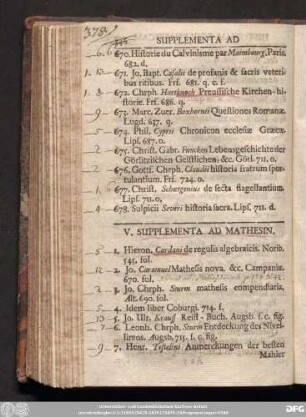 378.
SUPPLEMENTA AD
6 670. Historie du Calvinisme par Maimbourg, Paris,
682. d.
671. Jo. Bapt. Casalii de profanis & sacris veteri-
bus ritibus. Frf. 681. q. c. f.
672. Chrph. Hartknoch Preussische Kirchen-hi-
storie. Frf. 686. q.
673. Marc. Zuer. Boxhornii Quæstiones Romanæ.
Lugd. 637. q.
674. Phil. Cyprii Chronicon ecclesiæ Græcæ.
Lips. 687. o.
675. Christ. Gabr. Funcken Lebensgeschichte der
Görlitzischen Geistlichen, &c. Görl. 711. o.
676. Gottf. Chrph. Claudii historia fratrum spor-
tulantium. Frf. 724. o.
677. Christ. Schœtgenius de secta flagellantium.
Lips. 711. o.
678. Sulpicii Severi historia sacra. Lips. 711. d.
V. SUPPLEMENTA AD MATHESIN.
1. Hieron. Cardani de regulis algebraicis. Norib.
545. fol.
2. Jo. Caramuel Mathesis nova. &c. Campaniæ.
670. fol.
3. Jo. Chrph. Sturm mathesis compendiaria,
Alt. 690. fol.
4. Idem liber Coburgi. 714. f.
5. Jo. Ulr. Krausf Reiß-Buch. Augsb. f. c. fig.
6. Leonh. Chrph. Sturm Entdeckung des Nivel-
lirens. Augsb. 715. f. c. fig.
7. Henr. Testelins Anmerckungen der besten
Mahler